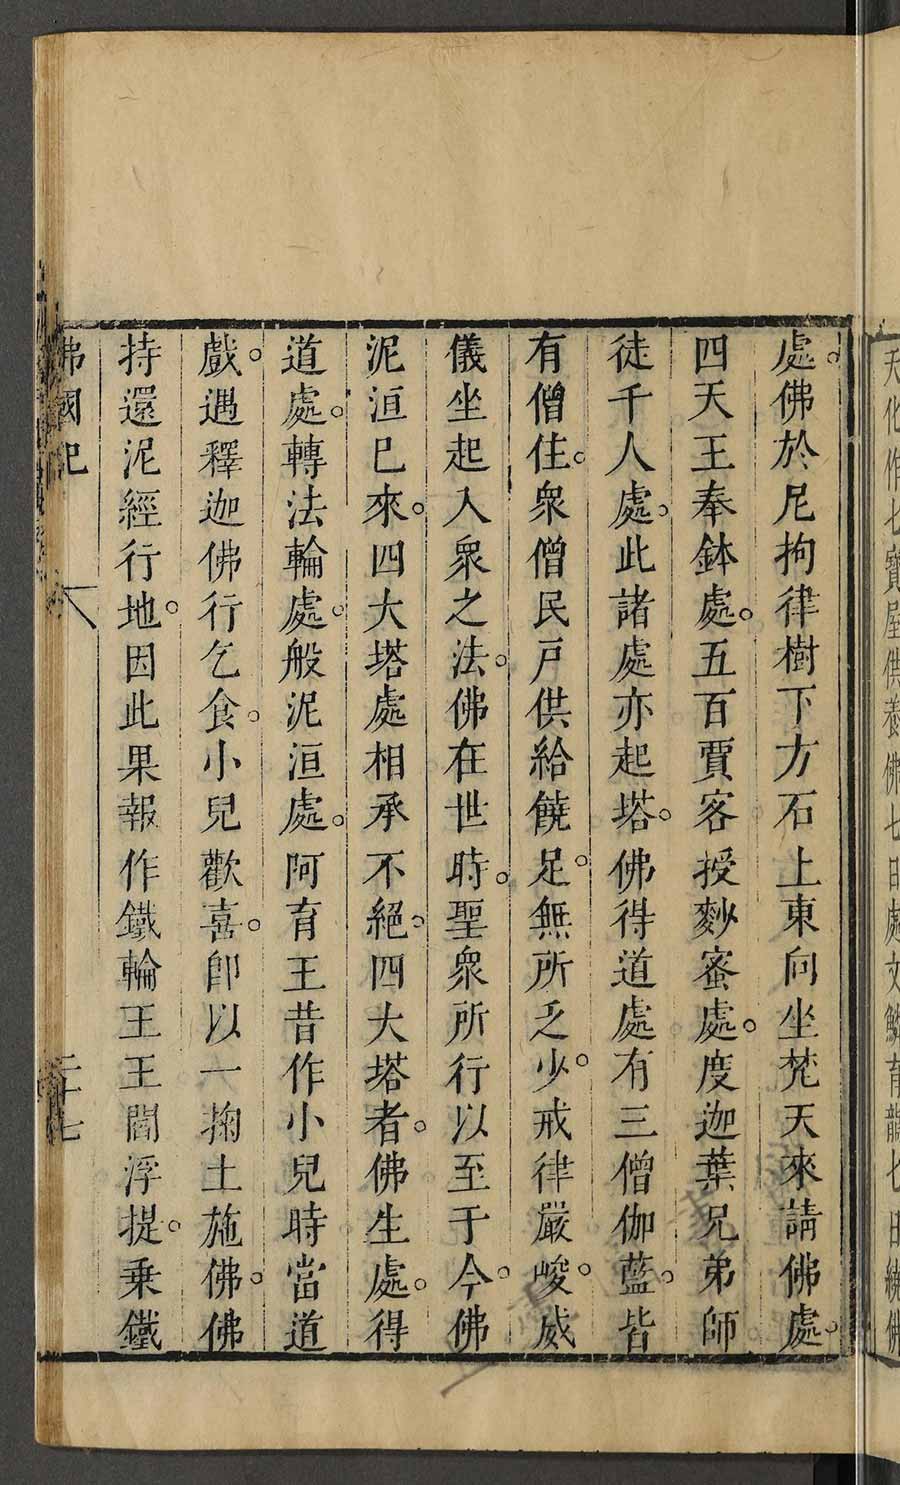 天化作七寶屋供養佛七日處文鱗盲龍七日繞佛
處。佛於尼拘律樹下方石上東向坐梵天來請佛處。
四天王奉鉢處。五百賈客授麨蜜處。度迦葉兄弟師
徒千人處。此諸處亦起塔。佛得道處有三僧伽藍。皆
有僧住。衆僧民戸供給饒足。無所乏少。戒律嚴峻。威
儀坐起入衆之法。佛在世時。聖衆所行以至于今。佛
泥洹已來。四大塔處相承不絕。四大塔者。佛生處。得
道處。轉法輪處。般泥洹處。阿育王昔作小兒時當道
戲。遇釋迦佛行乞食。小兒歡喜。卽以一掬土施佛。佛
持還泥經行地。因此果報作鐵輪王王閻浮提。乗鐵
佛國記 二十七